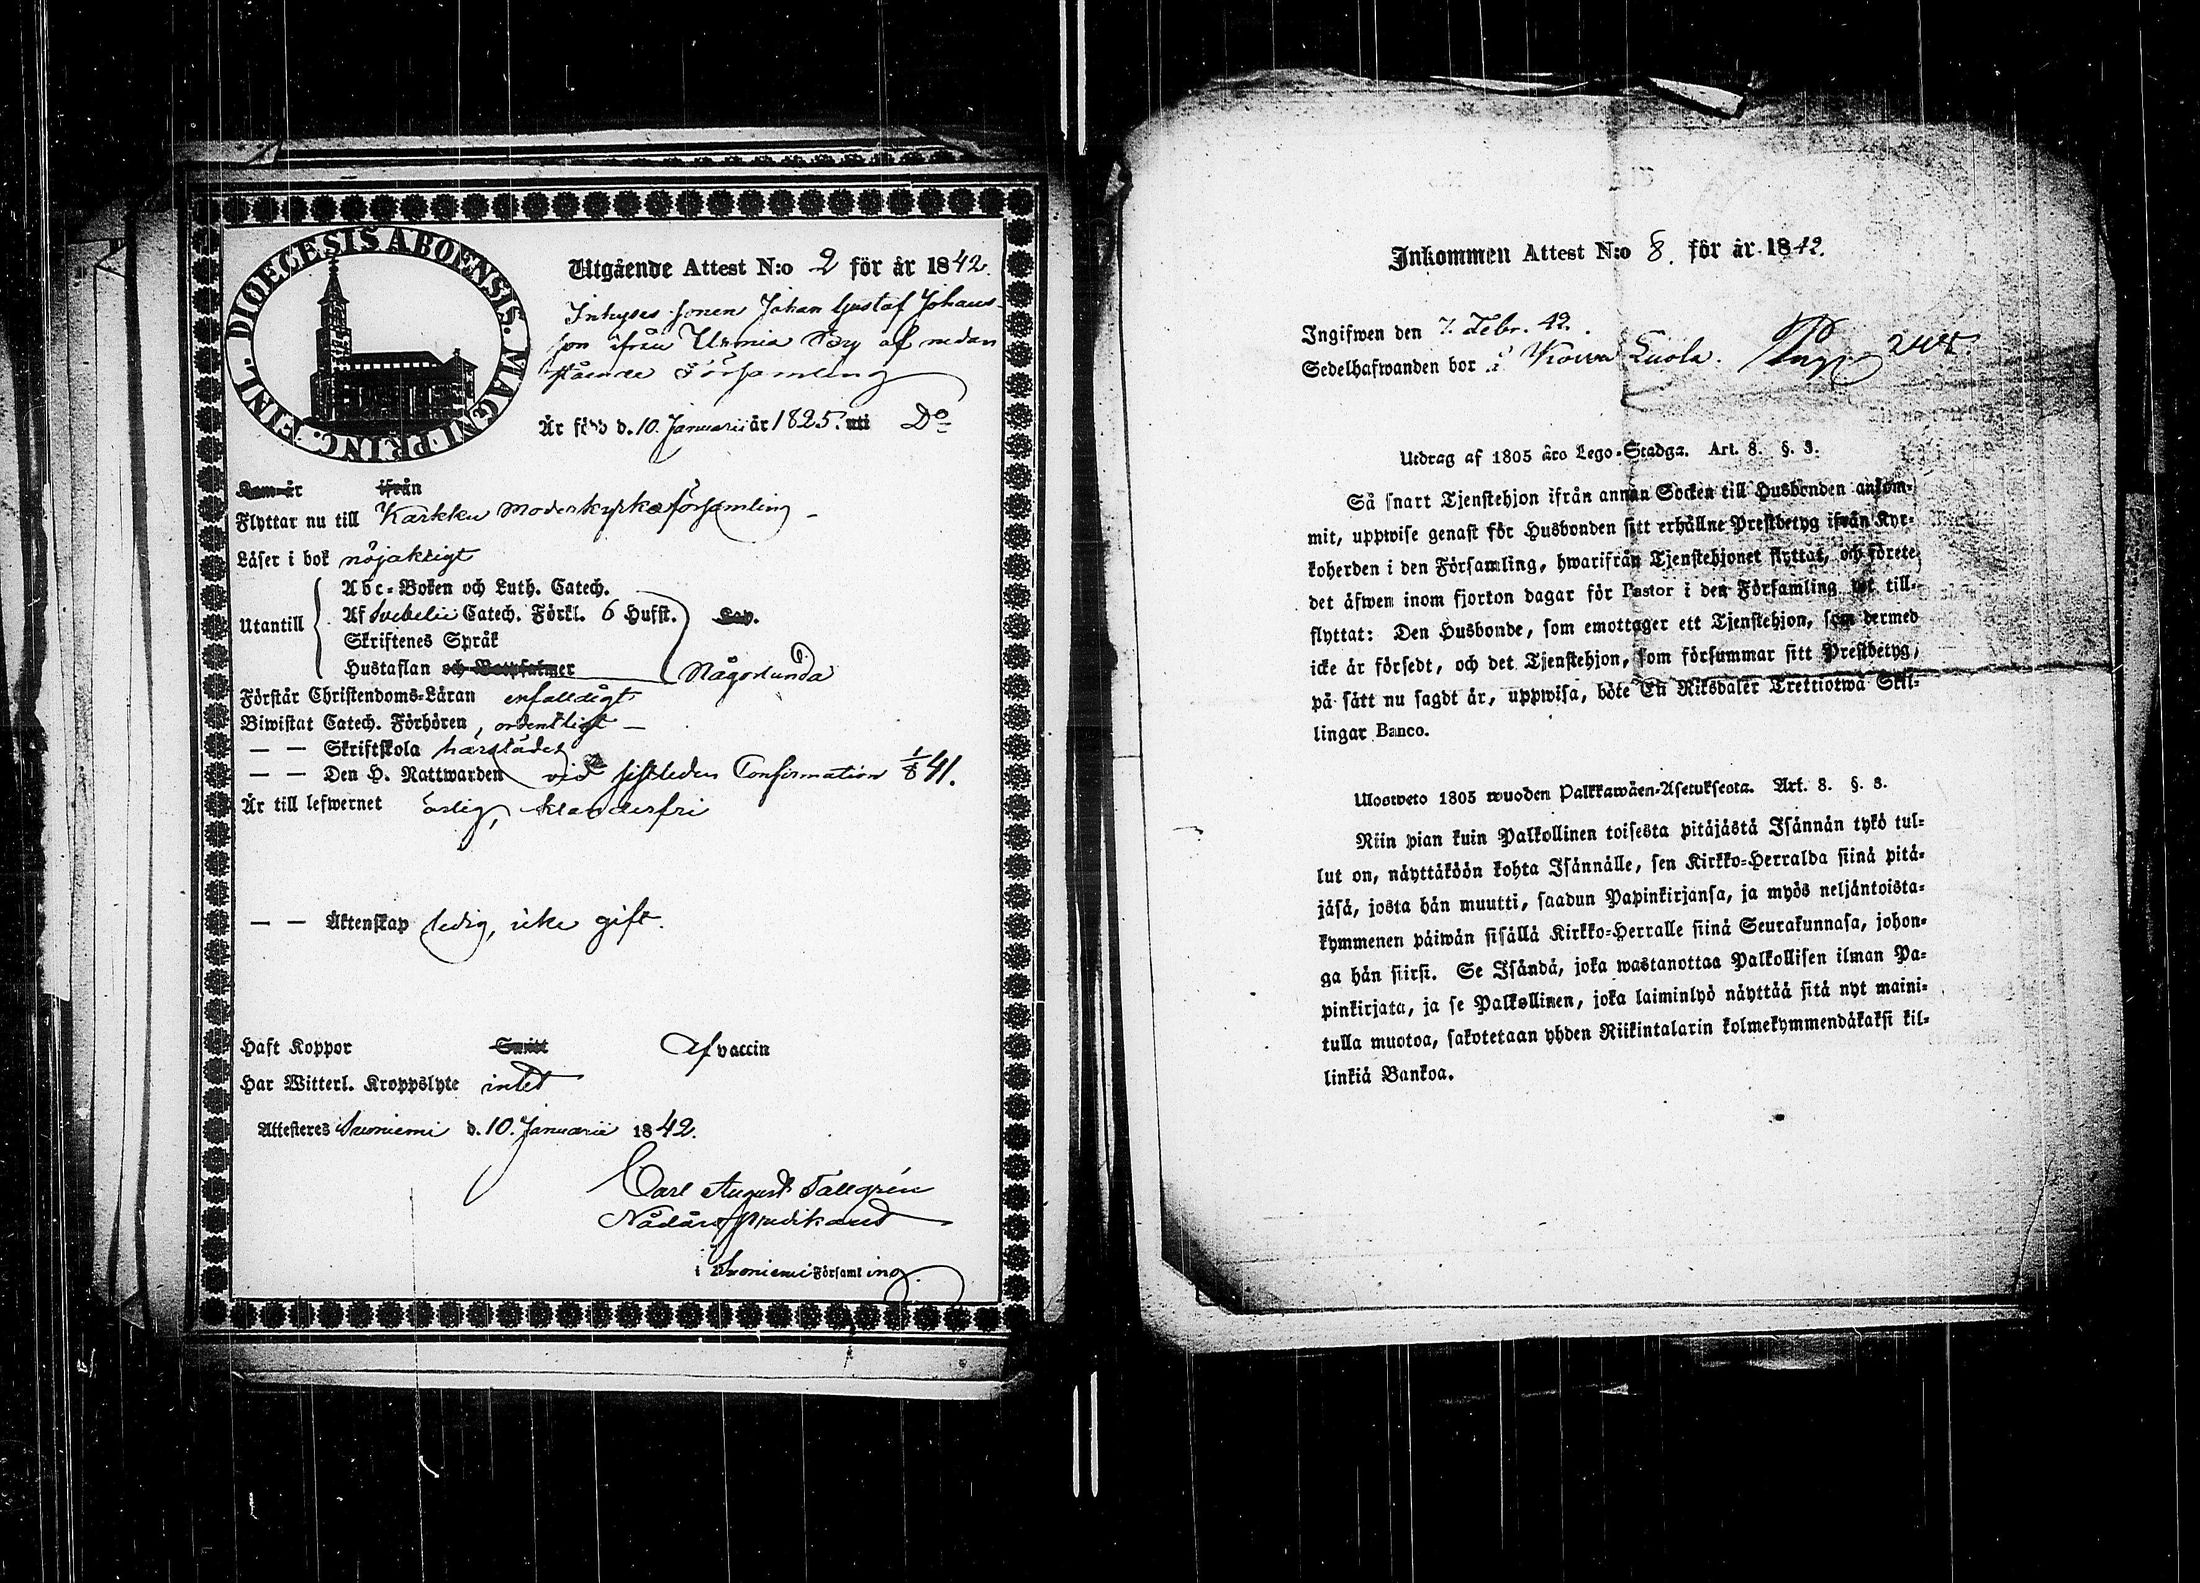 DIOECESIS ABOENSIS. MAGNI PRINC. FINL.
Utgående Attest N:o 2 för år 1842.
Inhyses sonen Johan Gustaf Johans-
son ifrån Urmia By af nedan
stående Församling
Är född d. 10. Januarii år 1825. uti Do
Kom år ifrån
Flyttar nu till Karkku Moderkyrkoförsamling –
Läser i bok nöjaktigt
Utantill
Abc-Boken och Luth. Catech.
Af Svebelii Catech. Förkl. 6 Hufst. Kap.
Skriftenes Språk
Hustaflan och Botpsalmer Någorlunda
Förstår Christendoms-Läran enfaldigt
Biwistat Catech. Förhören, ordentligt –
— — Skriftskola härstädes
— — Den H. Nattwarden vid sistledne Confirmation 1/8 41.
Är till lefwernet ärlig, klanderfri
— — Äktenskap ledig, icke gift.
Haft Koppor Smitt Af vaccin
Har Witterl. Kroppslyte intet
Attesteres Suoniemi d. 10. Januarii 1842.
Carl August Tallgrén
Nådårs Predikant
i Suoniemi Församling.
Inkommen Attest N:o 8. för år 1842.
Ingifwen den 7. Febr. 42.
Sedelhafwanden bor i Kowa Luola. Pag.
Utdrag af 1805 års Lego-Stadga. Art. 8. §. 3.
Så snart Tjenstehjon ifrån annan Socken till Husbonden ankom-
mit, uppwise genast för Husbonden sitt erhållne Prestbetyg ifrån Kyr-
koherden i den Församling, hwarifrån Tjenstehjonet flyttat, och förete
det äfwen inom fjorton dagar för Pastor i den Församling det till-
flyttat: Den Husbonde, som emottager ett Tjenstehjon, som dermed
icke är försedt, och det Tjenstehjon, som försummar sitt Prestbetyg,
på sätt nu sagdt är, uppwisa, böte En Riksdaler Trettiotwå Skil-
lingar Banco.
Ulosweto 1805 wuoden Palkkawäen-Asetuksesta. Art. 8. §. 3.
Niin pian kuin Palkollinen toisesta pitäjästä Isännän tykö tul-
lut on, näyttäköön kohta Isännälle, sen Kirkko-Herralda siinä pitä-
jäsä, josta hän muutti, saadun Papinkirjansa, ja myös neljäntoista-
kymmenen päiwän sisällä Kirkko-Herralle siinä Seurakunnasa, johon-
ga hän siirsi. Se Isändä, joka wastanottaa Palkollisen ilman Pa-
pinkirjata, ja se Palkollinen, joka laiminlyö näyttää sitä nyt maini-
tulla muotoa, sakotetaan yhden Riikintalarin kolmekymmendäkaksi kil-
linkiä Bankoa.